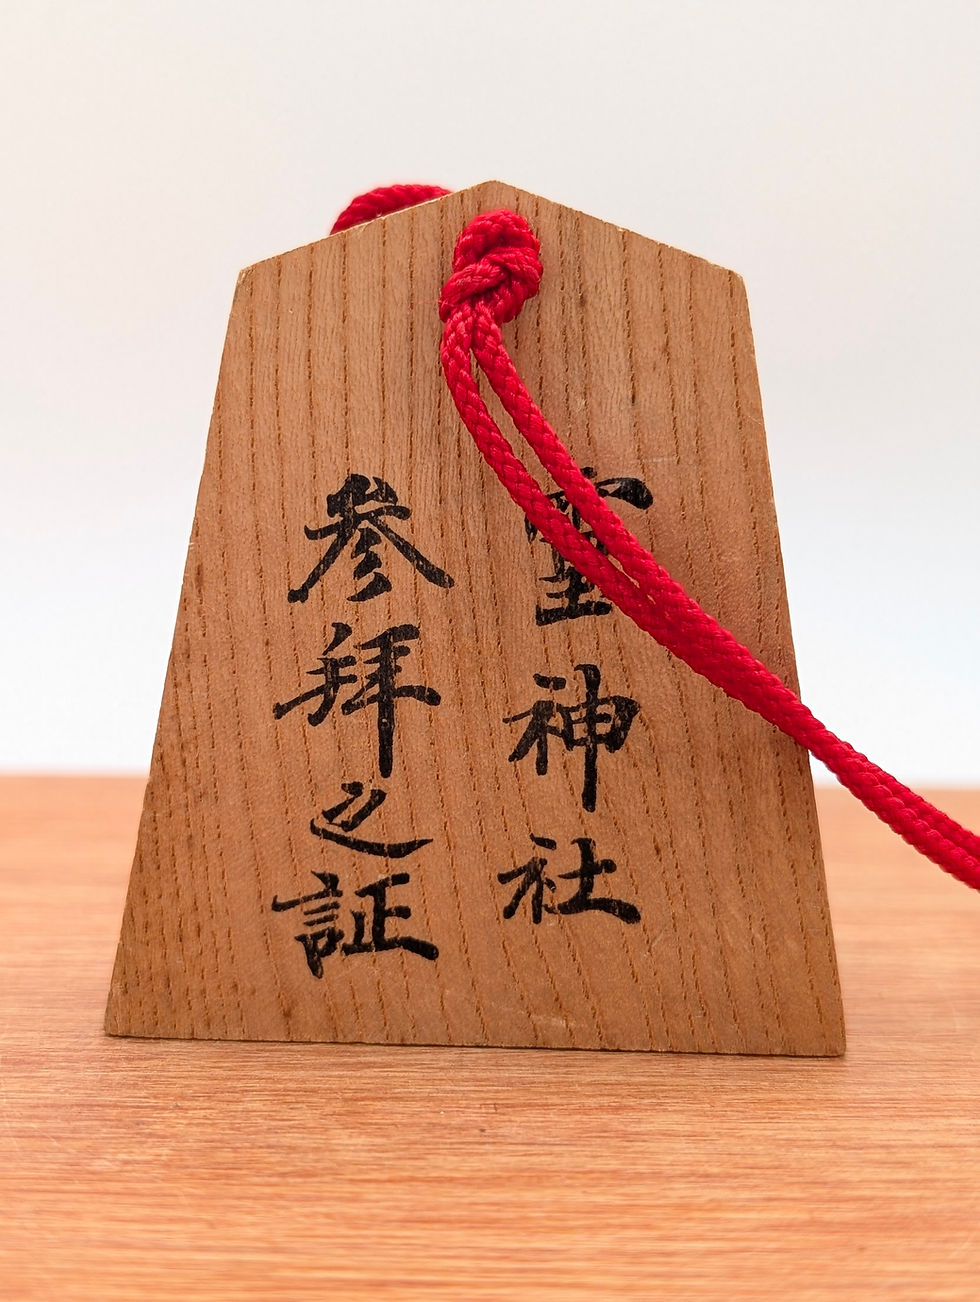 神社
参拜之証